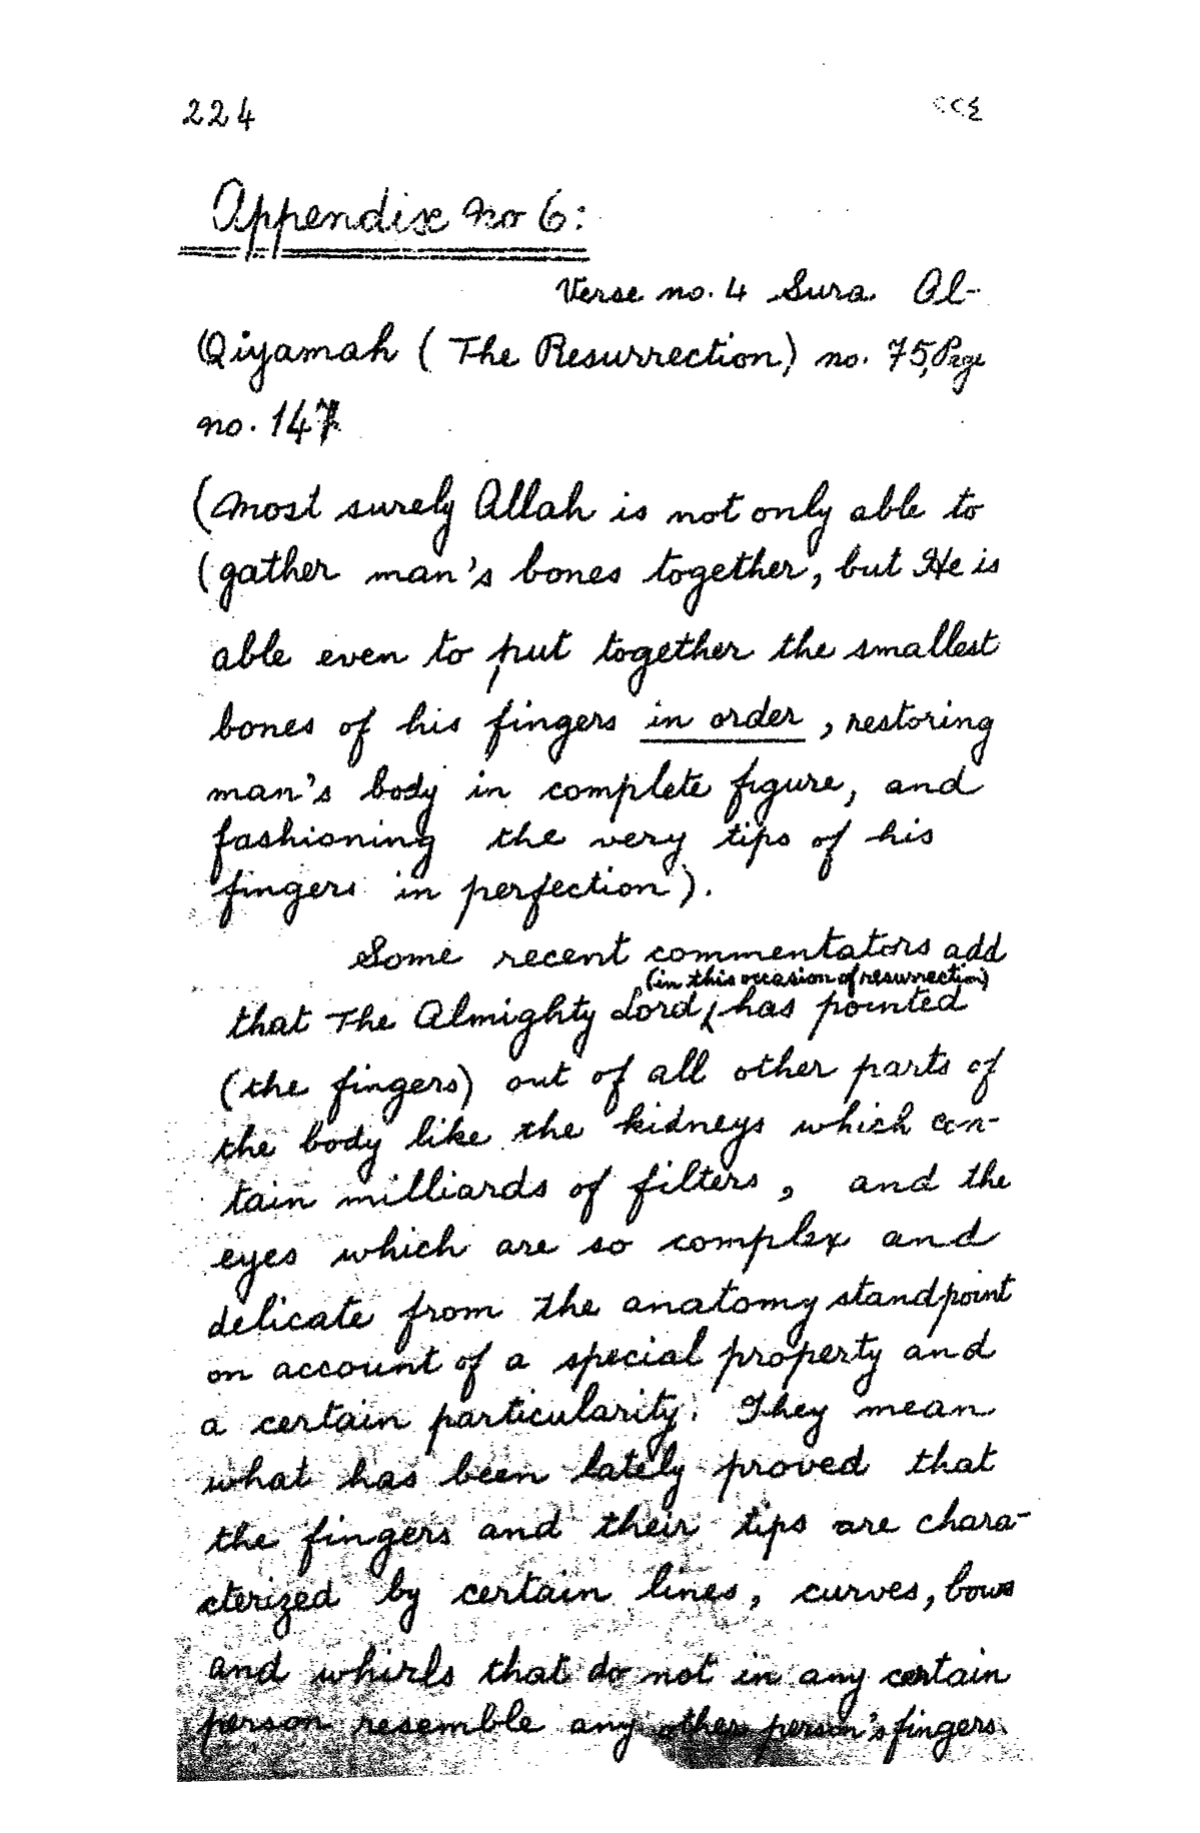 224 ٢٢٤
Appendix no 6:
Verse no. 4 Sura Al-
Qiyamah ( The Resurrection) no. 75, Page
no. 147
(most surely Allah is not only able to
(gather man's bones together, but He is
able even to put together the smallest
bones of his fingers in order , restoring
man's body in complete figure, and
fashioning the very tips of his
fingers in perfection).
Some recent commentators add
(in this occasion of resurrection)
that The Almighty Lord, has pointed
(the fingers) out of all other parts of
the body like the kidneys which con-
tain milliards of filters , and the
eyes which are so complex and
delicate from the anatomy standpoint
on account of a special property and
a certain particularity. They mean
what has been lately proved that
the fingers and their tips are chara-
cterized by certain lines, curves, bows
and whirls that do not in any certain
person resemble any other person's fingers.